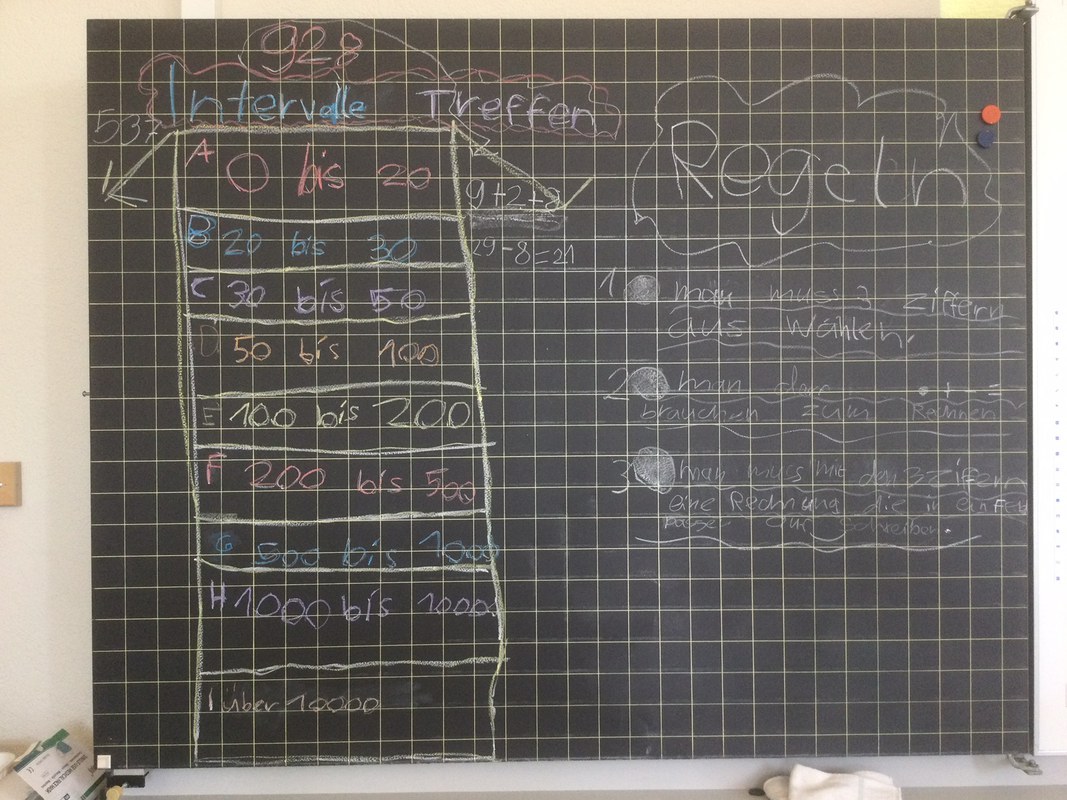 928
Intervalle Treffen
537
A 0 bis 20
B 20 bis 30
C 30 bis 50
D 50 bis 100
E 100 bis 200
F 200 bis 500
G 500 bis 1000
H 1000 bis 10000
I über 10000
9+2+8
29-8=21
Regeln
1 man muss 3 ziffern
aus wählen.
2 man darf • + - =
brauchen zum Rechnen
3 man muss mit den 3 Ziffern
eine Rechnung die in ein Feld
aufschreiben.